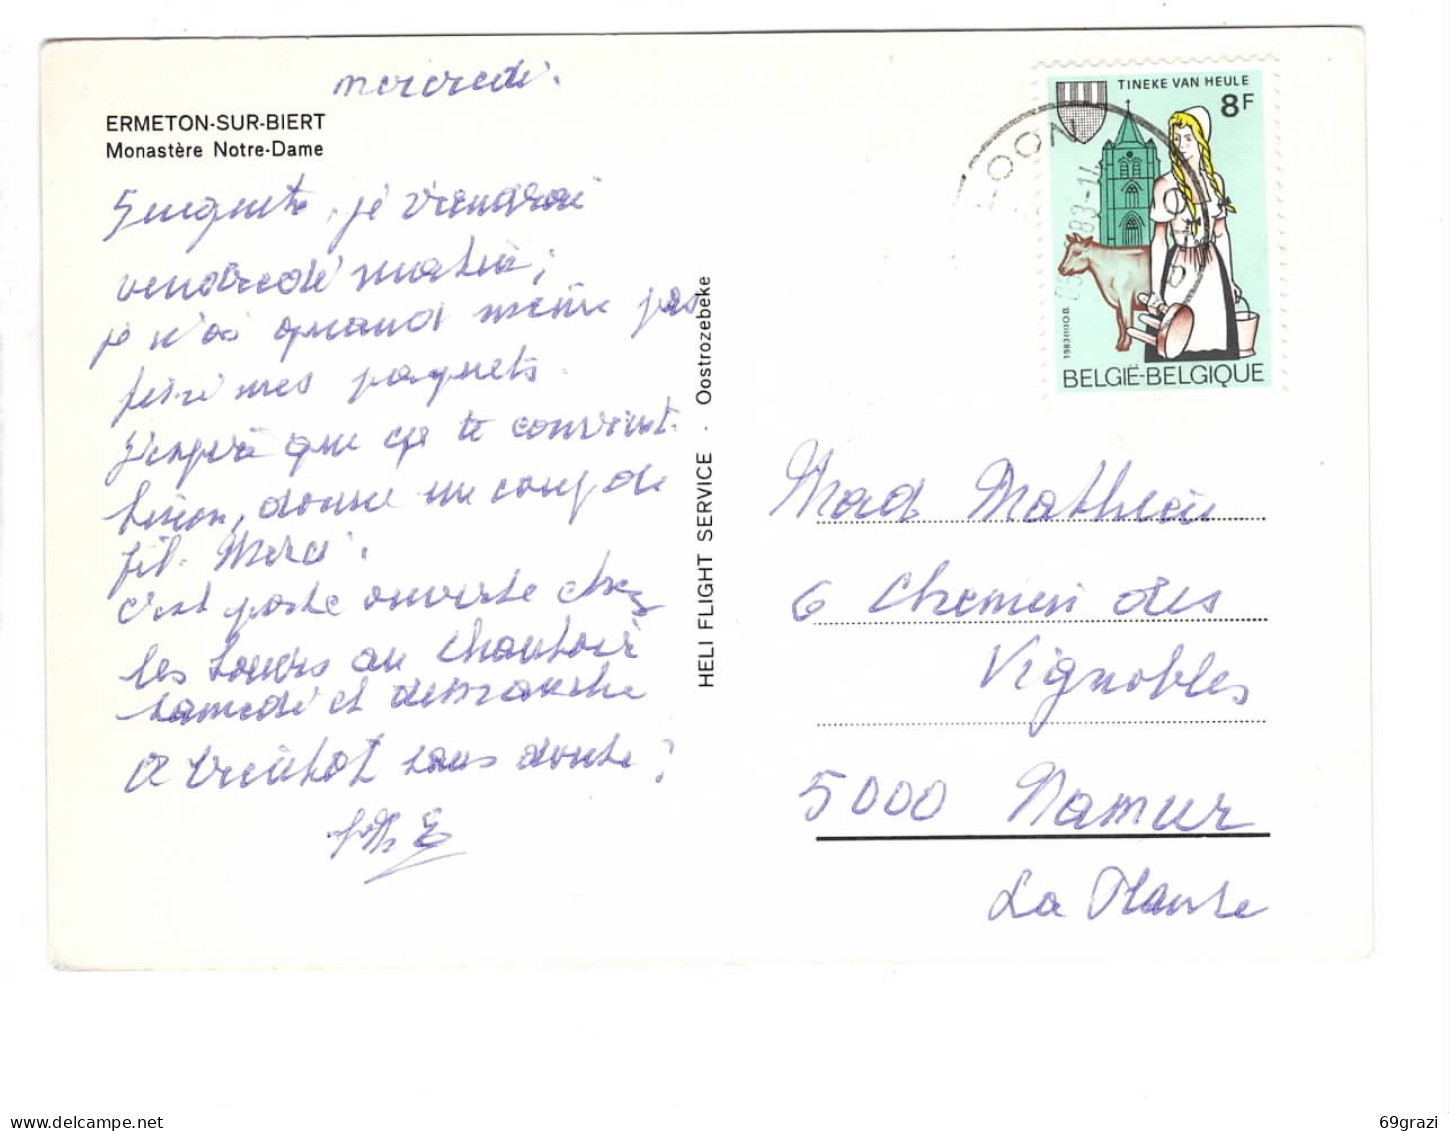 mercredi.
ERMETON-SUR-BIERT
Monastère Notre-Dame
je viendrai
vendredi matin;
je n'ai quand même pas
mes paquets.
J'espère que ça te convient.
Sinon, donne un coup de
fil. Merci.
c'est porte ouverte chez
les au Chantoir
samedi et dimanche
A bientôt sans doute?
HELI FLIGHT SERVICE . Oostrozebeke
TINEKE VAN HEULE
8F
1983(11)O.B.
BELGIË-BELGIQUE
LOON
83-14
Mad Mathieu
6 Chemin des
Vignobles
5000 Namur
La Plante
delcampe.net
69grazi